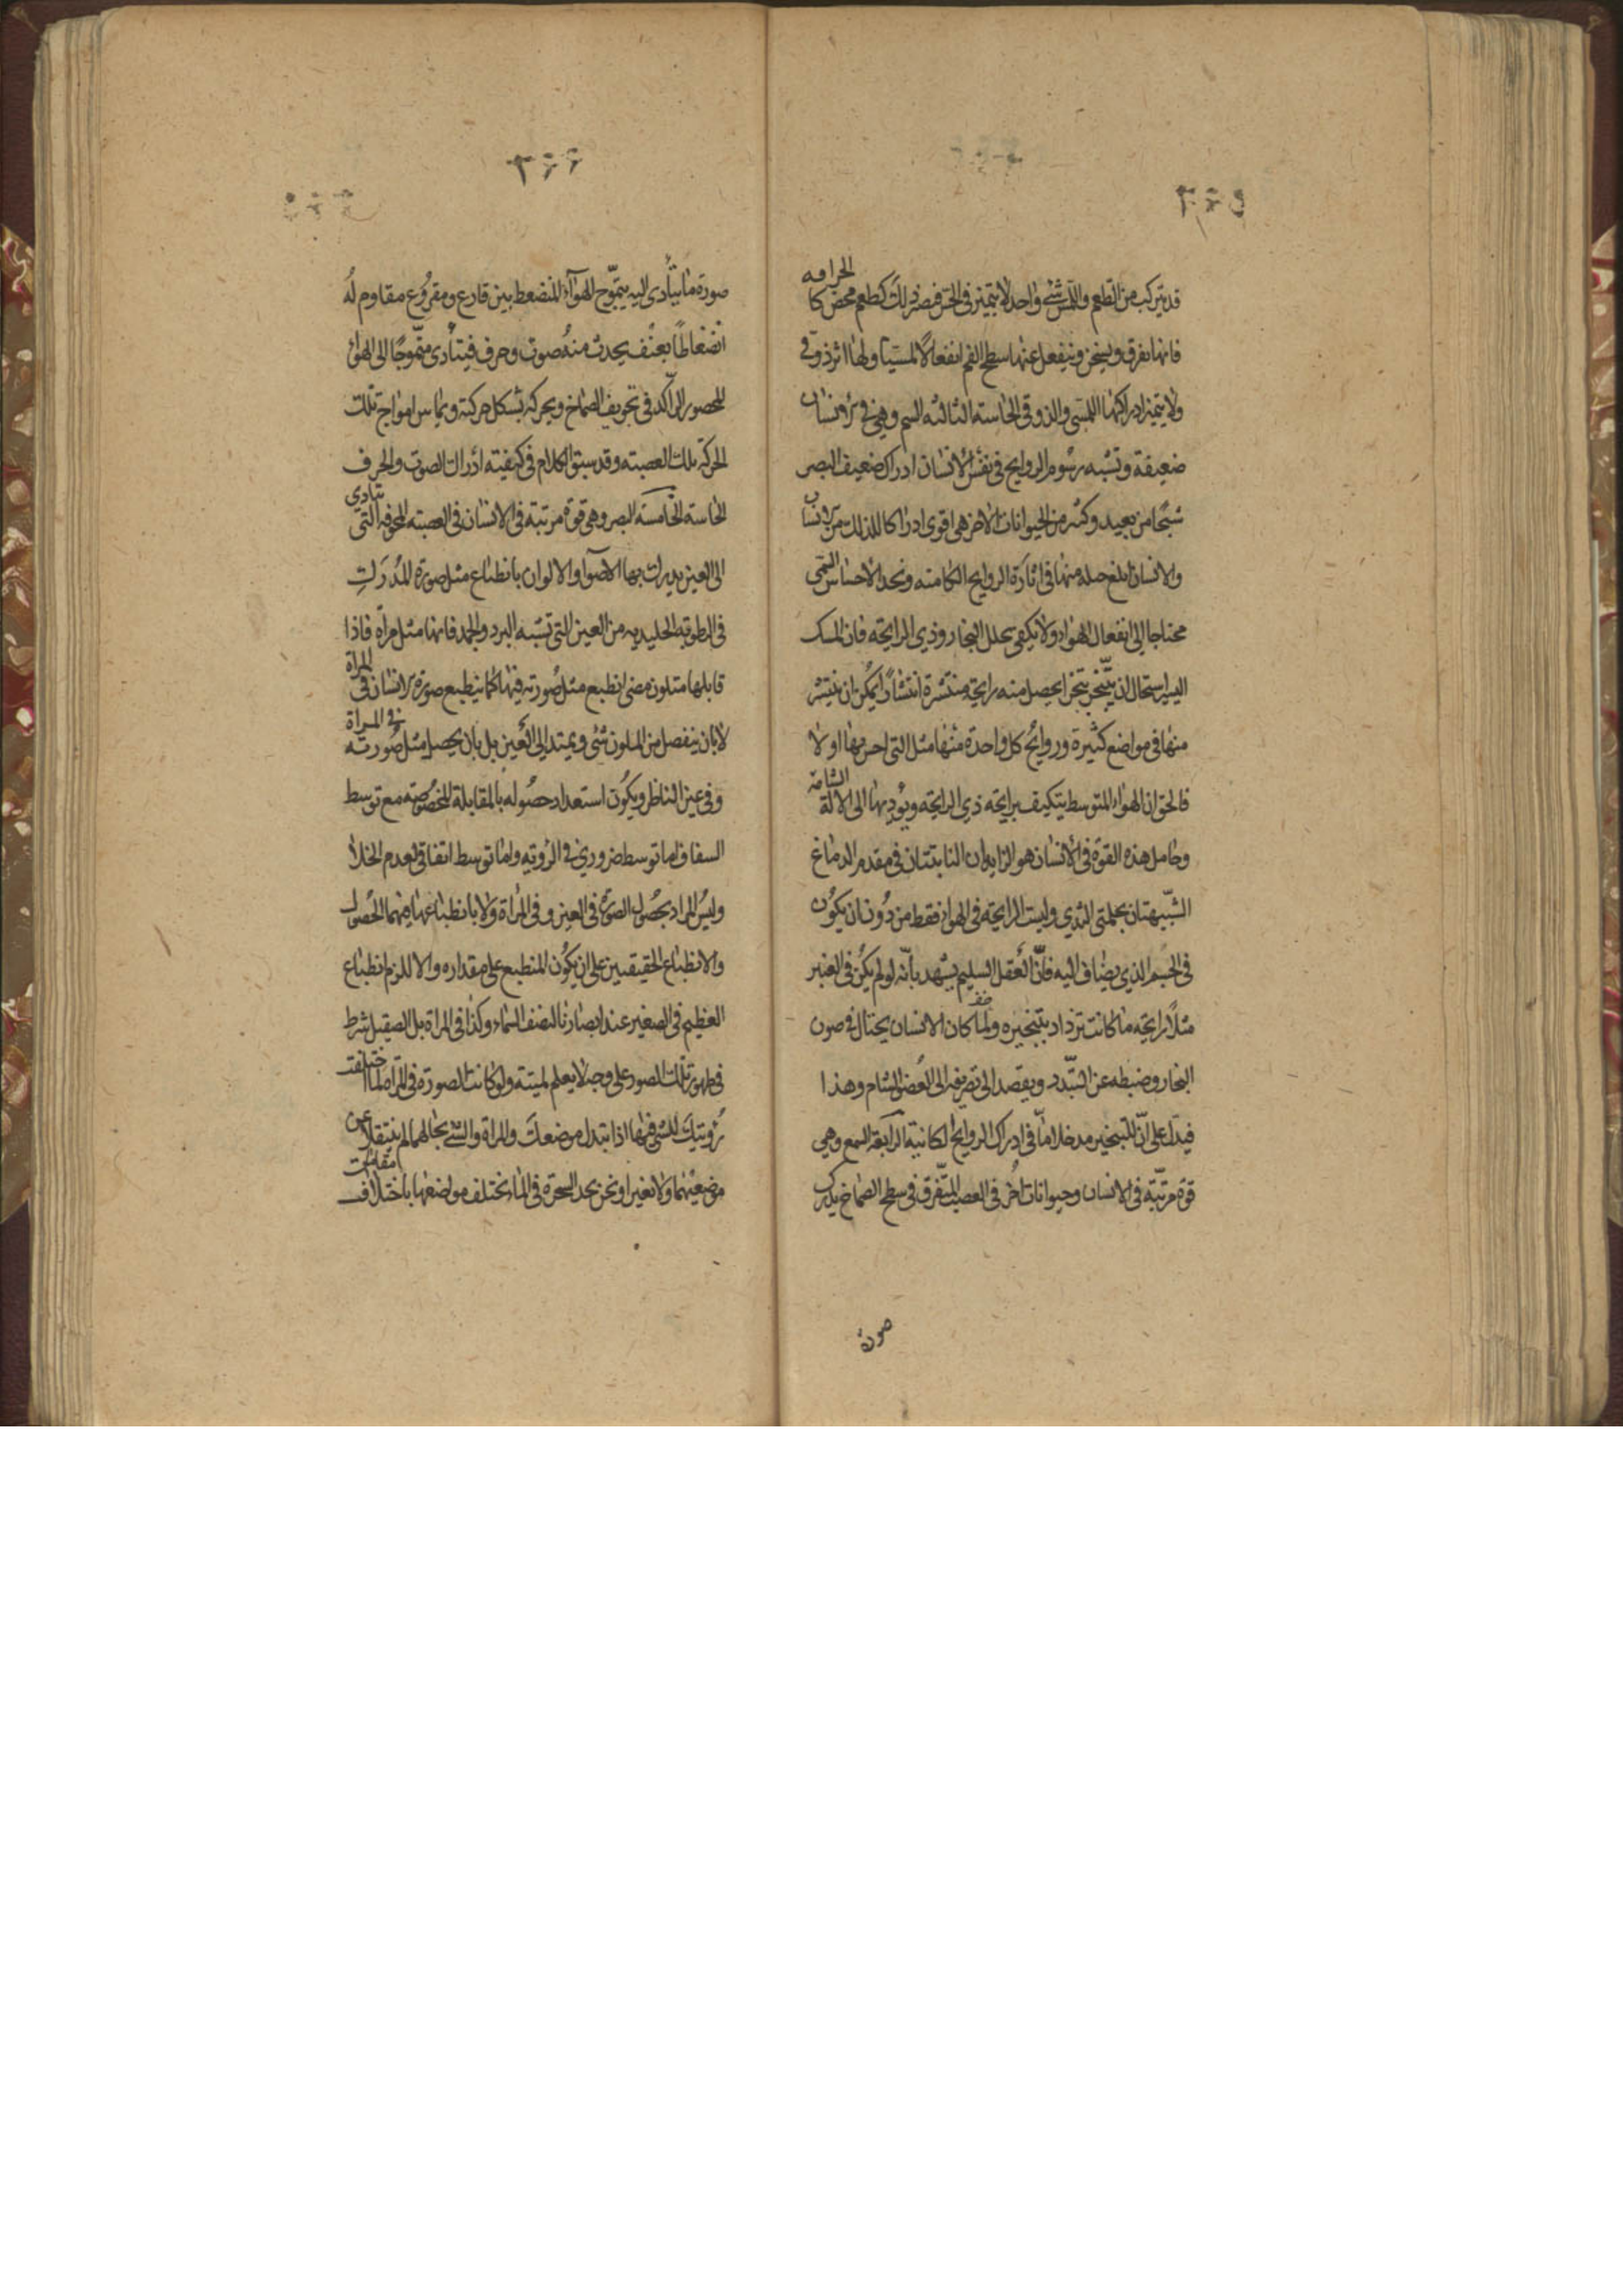 ٣٢٥
قد يتركب من الطعم واللمس شئ واحد لا يتميز في الحس فيصير ذلك كطعم محض كالحرافه
فانها تفرق وتسخن وينفعل عنها سطح الفم انفعالا لمسيا ولها اثر ذوقى
ولا يتميز ادراكها اللمسى والذوقى الحاسته الثالثه الشم وهى فى الانسان
ضعيفة وتشبه رسوم الروايح فى نفس الانسان ادراك ضعيف البصر
شبحا من بعيد وكثير من الحيوانات الاخر هى اقوى ادراكا لذلك من الانسان
والانسان ابلغ حيله منها فى اثارة الروايح الكامنه ونجد الاحساس الشمى
محتاجا الى انفعال الهواء ولا يكفى تحلل البخار وذي الرايحة فان المسك
اليسير استحال ان يتبخر تبخرا يحصل منه رايحة منتشرة انتشارا يمكن ان ينتشر
منها فى مواضع كثيرة وروائح كل واحدة منها مثل التى احس بها اولا
فالحق ان الهواء المتوسط يتكيف برايحة ذي الرايحة ويؤديها الى الآلة الشامة
وحامل هذه القوة فى الانسان هو الزايدتان النابتتان فى مقدم الدماغ
الشبيهتان بحلمتى الثدي وليست الرايحة فى الهواء فقط من دون ان يكون
فى الجسم الذي يضاف اليه فان العقل السليم يشهد بانه لو لم يكن فى العنبر
مثلا رايحة ما كانت تزداد بتبخيره ولما كان الانسان يحتال فى صون
البخار وضبطه عن التبدد ويقصد الى تصريفه الى العضو الشام وهذا
فيدل على ان للتبخير مدخلا ما فى ادراك الروايح الكانية الرابعة السمع وهي
قوة مرتبة فى الانسان وحيوانات اخر فى العصب المتفرق فى سطح الصماخ يدرك
صورة
٣٢٦
صورة ما يتأدى اليه بتموج الهوآء المنضغط بين قارع ومقروع مقاوم له
انضغاطا بعنف يحدث منه صوت وحرف فيتأدى متموجا الى الهواء
المحصور الراكد فى تجويف الصماخ ويحركه بشكل حركته ويماس امواج تلك
الحركة تلك العصبته وقد سبق الكلام فى كيفيته ادراك الصوت والحرف
الحاسة الخامسة البصر وهى قوة مرتبة فى الانسان فى العصبته المجوفه التى تتادي
الى العين يدرك بها الاضوآ والالوان بانطباع مثل صورة المدرك
فى الرطوبة الجليديه من العين التى تشبه البرد والجمد فانها مثل مرآة فاذا
قابلها متلون مضئ انطبع مثل صورته فيها كما ينطبع صورة الانسان فى المرآة
لا بان ينفصل من المتلون شئ ويمتد الى العين بل بان يحصل مثل صورته فى المرآة
وفى عين الناظر ويكون استعداد حصوله بالمقابلة المخصوصته مع توسط
الشفاف اما توسط ضروري فى الرؤيه واما توسط اتفاقى لعدم الخلأ
وليس المراد بحصول الصورة فى العين وفى المرآة ولا بانطباعها فيهما الحصول
والانطباع الحقيقيين على ان يكون المنطبع على مقداره والا للزم انطباع
العظيم فى الصغير عند ابصارنا لنصف السماء وكذا فى المراة بل الصقيل شرط
فى ظهور تلك الصور على وجه لا يعلم لميته ولو كانت الصورة فى المرآة لما اختلفت
رؤيتك للشئ فيها اذا تبدل موضعك والمرآة والشئ بحالهما لم ينتقلا عن
موضعيهما ولا تغيرا ونحن نجد الشجرة فى الماء يختلف مواضعها باختلاف مقامات